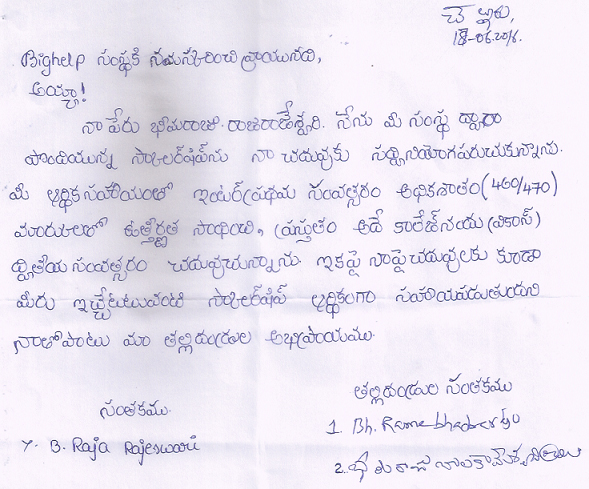 చెల్లూరు,
18-06.2016.
Bighelp సంస్థకి నమస్కరించి వ్రాయునది,
అయ్యా!
నా పేరు భీమరాజు. రాజరాజేశ్వరి. నేను మీ సంస్థ ద్వారా
పొందియున్న స్కాలర్‌షిప్‌ను నా చదువుకు సద్వినియోగపరుచుకున్నాను.
మీ ఆర్థిక సహాయంతో ఇంటర్ ప్రథమ సంవత్సరం అధికశాతం (460/470)
మార్కులతో ఉత్తీర్ణత సాధించి, ప్రస్తుతం అదే కాలేజ్‌నయ (వికాస్)
ద్వితీయ సంవత్సరం చదువుచున్నాను. ఇకపై నాపైచదువులకు కూడా
మీరు ఇచ్చేటటువంటి స్కాలర్‌షిప్ ఆర్థికంగా సహాయపడుతుందని
నాతోపాటు మా తల్లిదండ్రుల అభిప్రాయము.
తల్లిదండ్రుల సంతకము
సంతకము.
1. Bh.
Y. B. Raja Rajeswari
2.